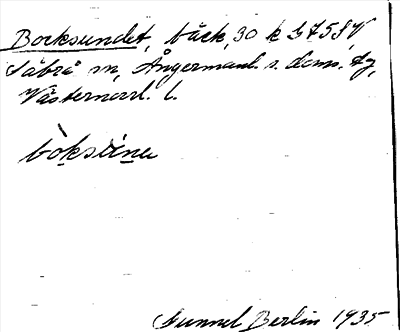 Bocksundet, bäck, 30 k G 7 5 S V
Säbrå sn, Ångermanl. s. doms. tg,
Västernorrl. l.
Gunnel Berlin 1935